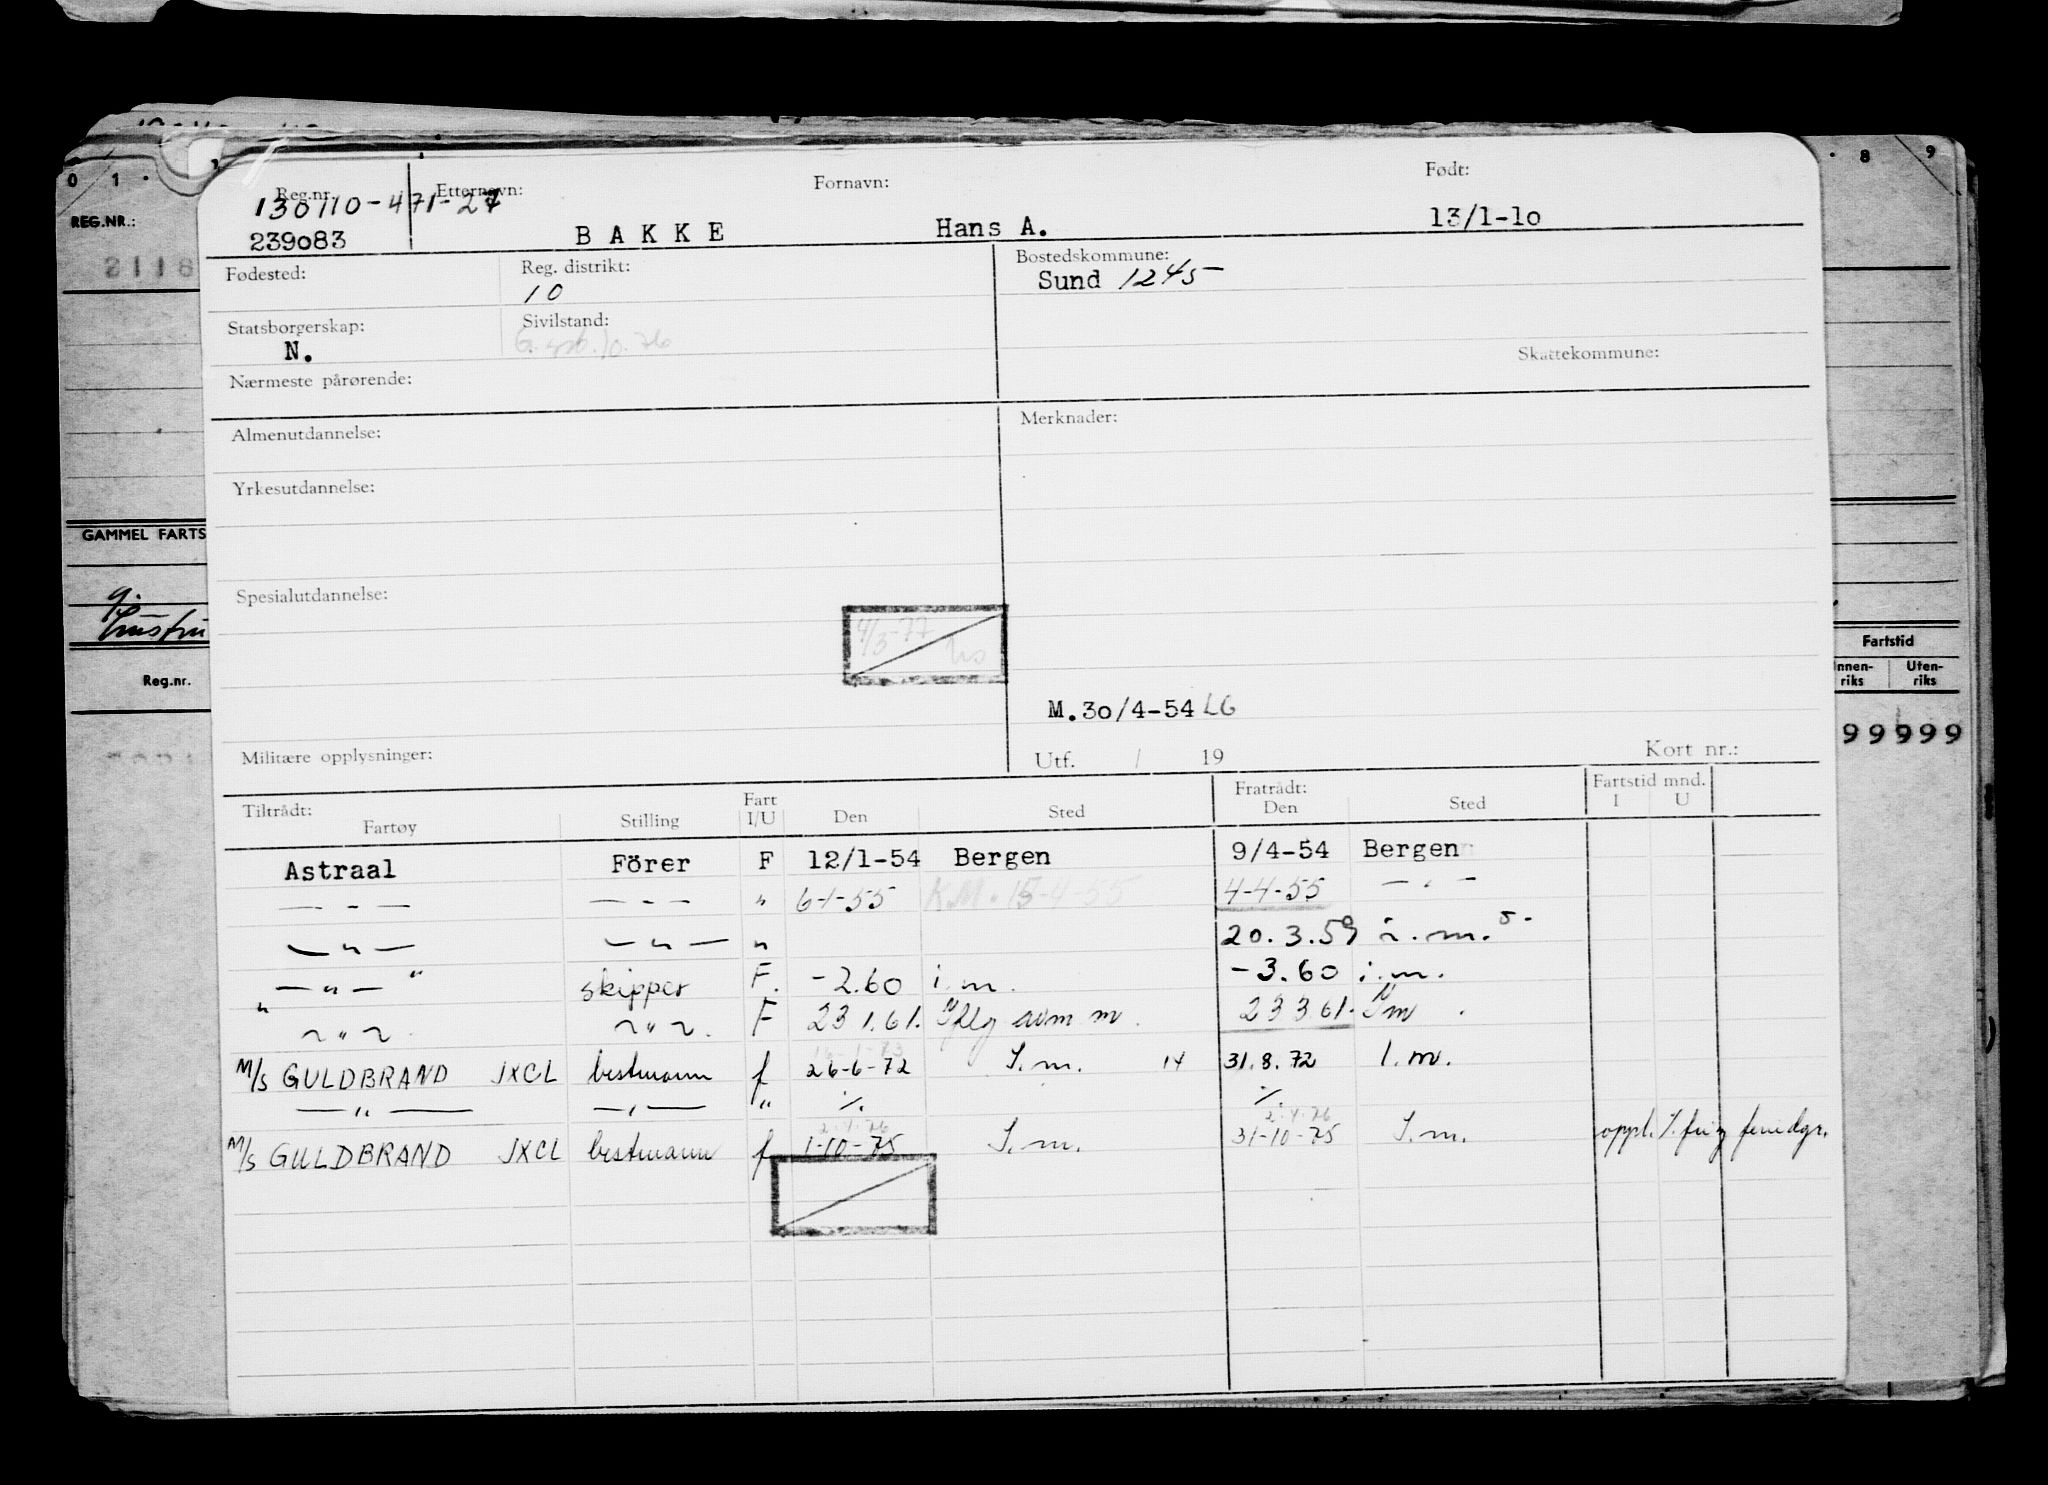 0 1 . 8 9
REG.NR.:
2118
Reg.nr. Etternavn: Fornavn: Født:
130110-471-27
239o83 B A K K E Hans A. 13/1-1o
Fødested: Reg. distrikt: Bostedskommune:
10 Sund 1245
Statsborgerskap: Sivilstand:
N. Skattekommune:
Nærmeste pårørende:
Almenutdannelse: Merknader:
Yrkesutdannelse:
GAMMEL FARTS
Spesialutdannelse:
4/3-77
Fartstid
Reg.nr. Innen-riks Uten-riks
M.3o/4-54 LG
99999
Militære opplysninger: Utf. / 19 Kort nr.:
Tiltrådt: Fratrådt: Fartstid mnd.
Fartøy Stilling Fart I/U Den Sted Den Sted I U
Astraal Förer F 12/1-54 Bergen 9/4-54 Bergen
— - — — - — " 6-1-55 K.M. 15-4-55 4-4-55 — " —
— " — — " — " 20.3.59 i.m.
— " — " skipper F. -2.60 i.m. -3.60 i.m.
" — " — — " — . F 23 1.61. 23 3 61.
M/S GULDBRAND JXCL bestmann f 26-6-72 I.m. 14 31.8.72 I.m.
— " — — " — " %. %.
2.4.76
M/S GULDBRAND JXCL bestmann f 1-10-75 I.m. 31-10-75 I.m.